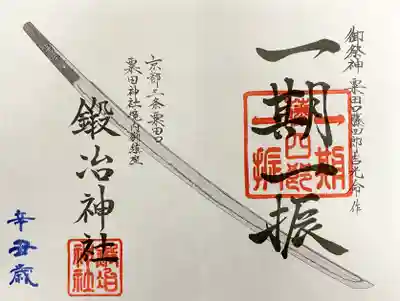 御祭神 粟田口藤四郎吉光命 作
一期一振
京都三条粟田口
粟田神社境内御鎮座
鍛冶神社
辛丑歳
藤四郎
一期
一振
鍛冶
神社